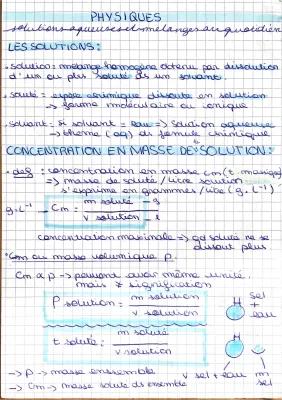 PHYSIQUES
solutions aqueuses et mélanges au quotidien
LES SOLUTIONS:
• solution: mélange homogène obtenu par dissolution
d'un ou plus soluté ds un solvant.
• soluté: espèce chimique dissoute en solution
→ forme moléculaire ou ionique
• solvant: si solvant = eau => solution aqueuse
→ terme (aq) ds formule chimique
CONCENTRATION EN MASSE DE SOLUTION:
• def: concentration en masse Cm (t massique)
=> masse de soluté / litre solution
s'exprime en grammes / litre (g.L⁻¹)
g.L⁻¹ - Cm = m soluté - g
v solution - L
concentration maximale => qd soluté ne se
dissout plus
• Cm ou masse volumique ρ.
Cm & ρ → peuvent avoir même unité.
mais ≠ signification
ρ solution = m solution
v solution
H sel
+
eau
t soluté = m soluté
v solution
→ ρ → masse ensemble
→ Cm → masse soluté ds ensemble
v sel + eau
m
sel